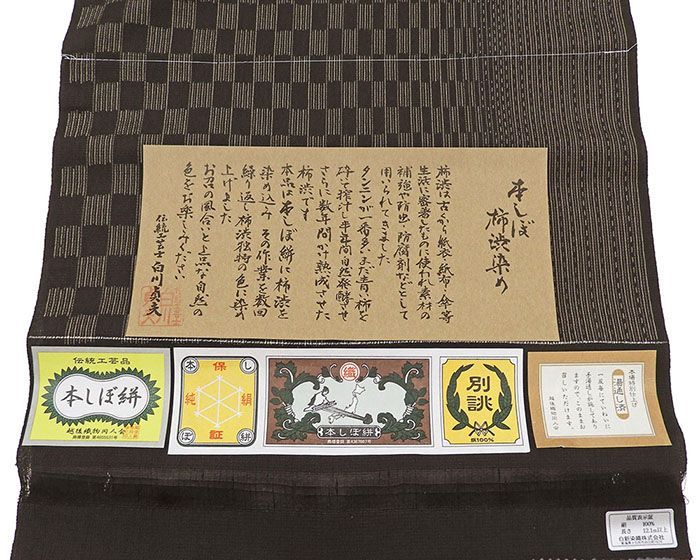 本しぼ
柿渋染め
柿渋は古くから紙衣・紙布・傘等
生活に密着したものに使われ素材の
補強や防虫・防腐剤などとして
用いられてきました
タンニンが一番多いまだ青い柿を
砕いて搾汁し半年間自然発酵させ
さらに数年間かけ熟成させた
柿渋です
本品は本しぼ絣に柿渋を
染め込み その作業を数回
繰り返し柿渋独特の色に染め
上げました
お召の風合いと上品な自然の
色をお楽しみください
伝統工芸士 白川
伝統工芸品
本しぼ絣
越後織物同人会
本しぼ
純絹
保
証
本しぼ絣
別誂
絹100%
本場特別仕上げ
湯通し済
一反毎にていねいに
手湯通しが施してあり
ますので、このままお
召しいただけます。
越後織物同人会
品質表示証
絹 100%
長さ 12.1m以上
白新染織株式会社